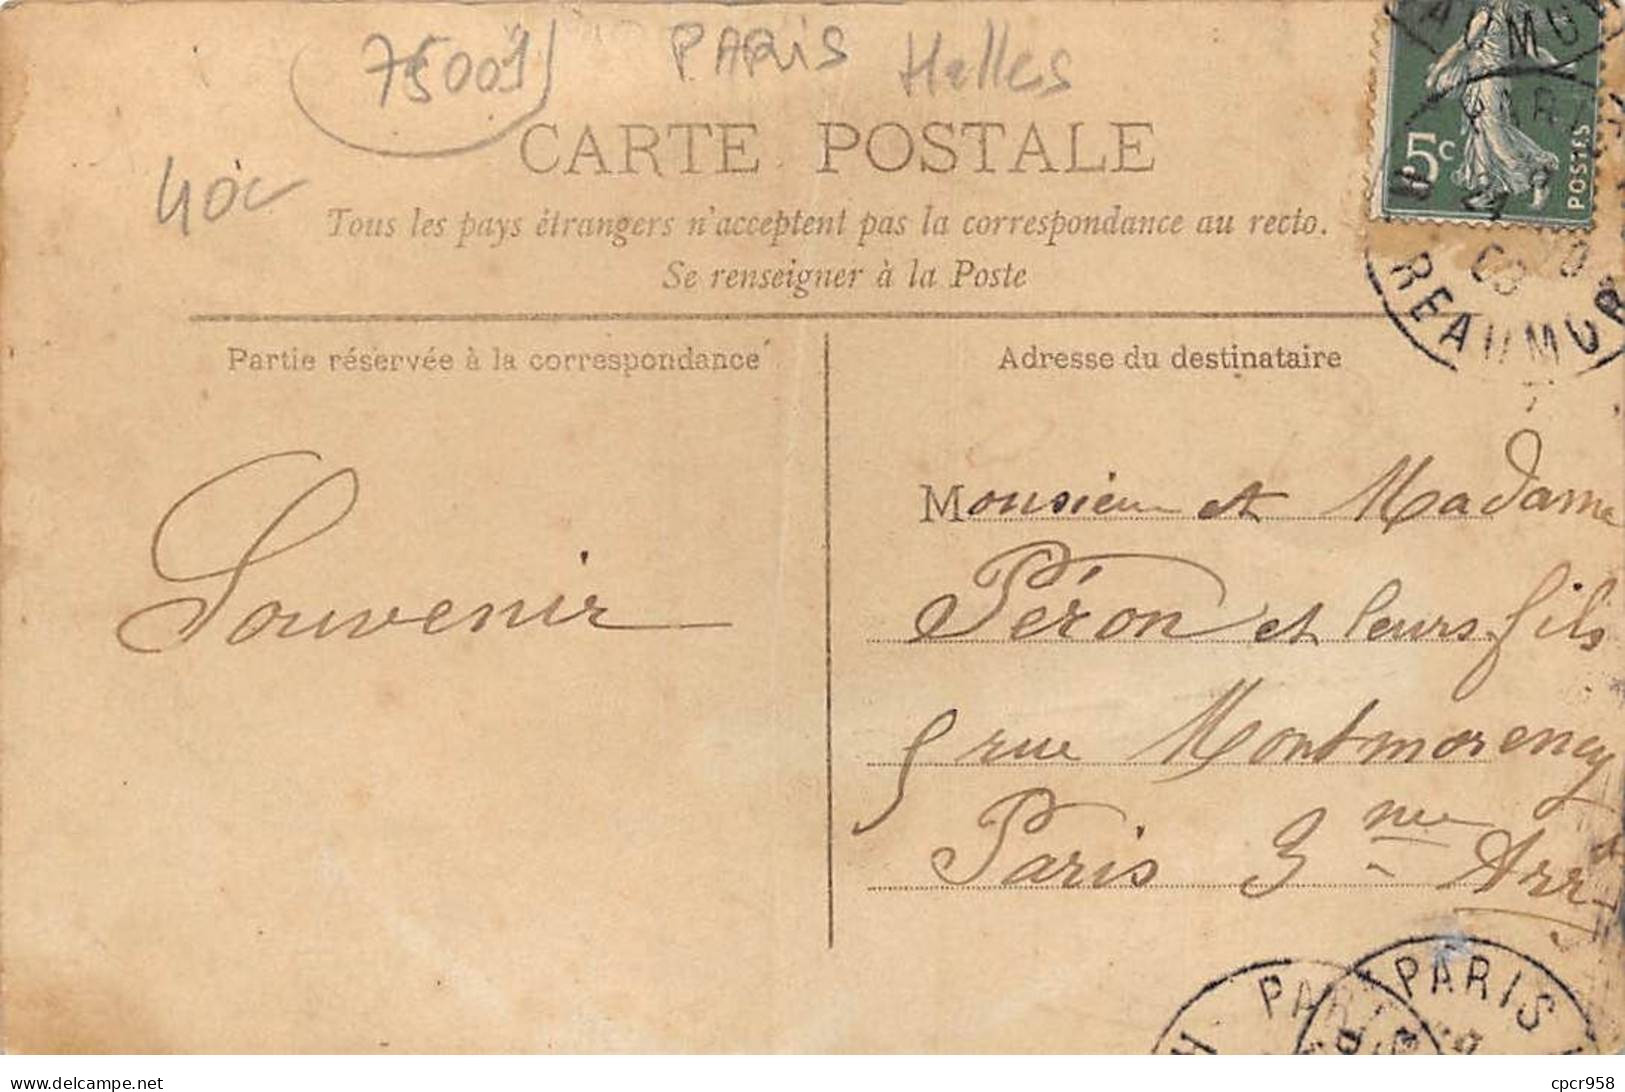 75001 PARIS Halles
CARTE POSTALE
40c
Tous les pays étrangers n'acceptent pas la correspondance au recto.
Se renseigner à la Poste
5c
POSTES
REAUMUR
Partie réservée à la correspondance
Adresse du destinataire
Souvenir
Monsieur et Madame
Péron et leurs fils
5 rue Montmorency
Paris 3me Arrt
PARIS
PARIS
delcampe.net
cpcr958